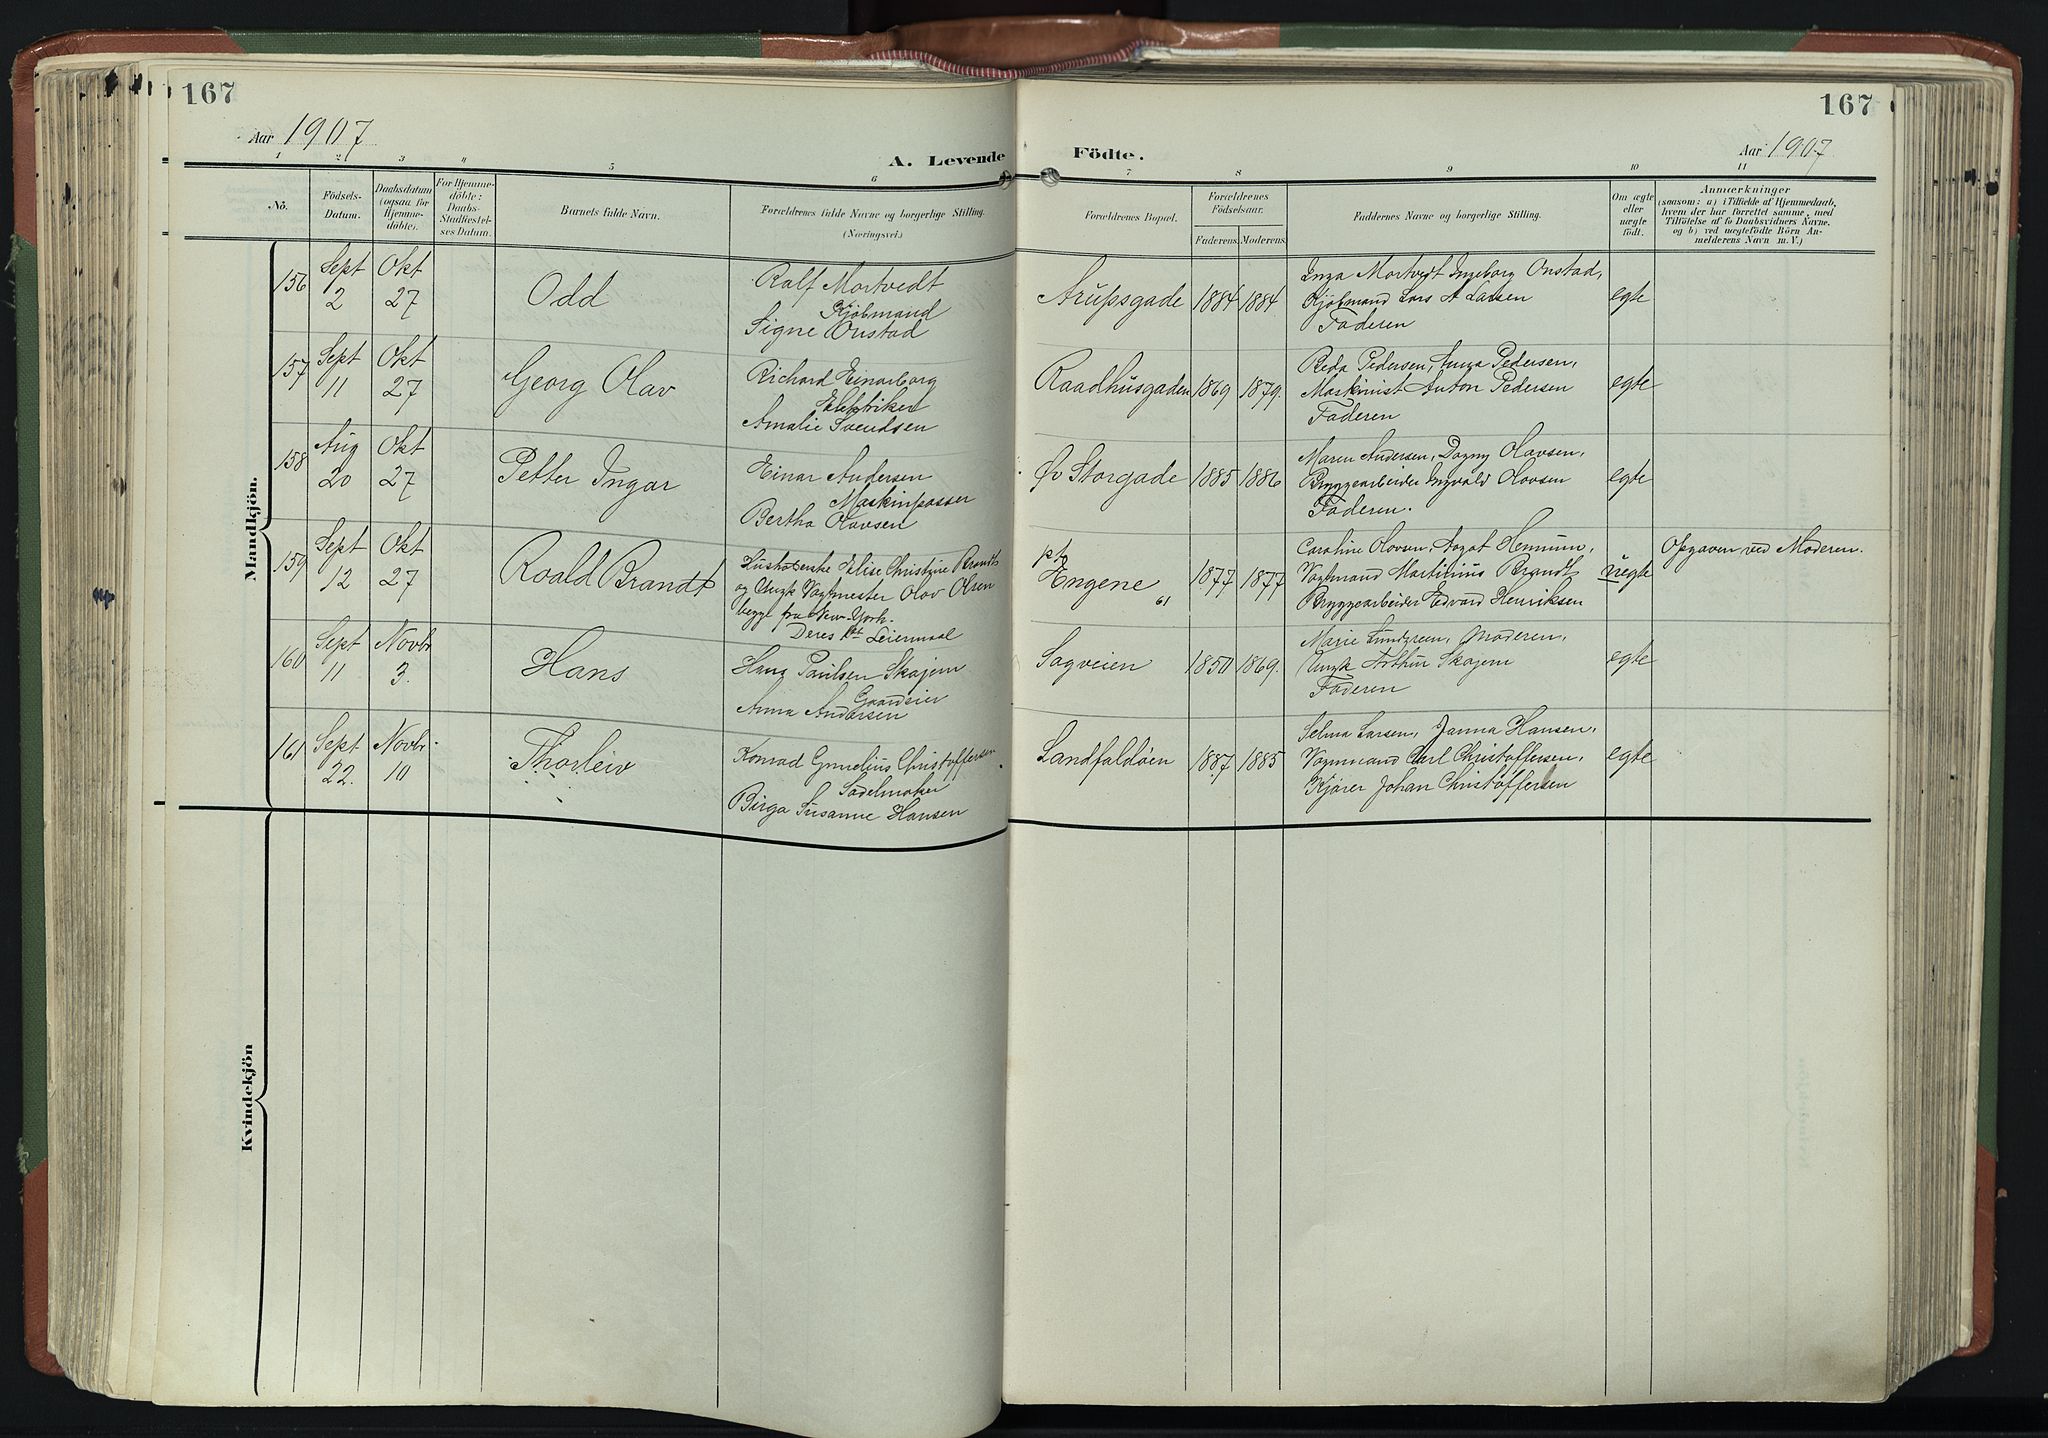 167
Aar 1907
A. Levende
1
2
3
4
5
6
Nö.
Födsels-
Datum.
Daabsdatum
(ogsaa for
Hjemme-
döbte).
For Hjemme-
döbte:
Daabs-
Stadfæstel-
ses Datum.
Barnets fulde Navn.
Forældrenes fulde Navne og borgerlige Stilling.
(Næringsvei.)
Mandkjön.
156
Sept
2
Okt
27
Odd
Ralf Mortvedt
Kjöbmand
Signe Onstad
157
Sept
11
Okt
27
Georg Olav
Richard Einarborg
Elektriker
Amalie Svendsen
158
Aug
20
Okt
27
Petter Ingar
Einar Andersen
Maskinpasser
Bertha Olavsen
159
Sept
12
Okt
27
Roald Brandt
Elise Christine Brandt
og Ungk Vagtmester Olav Olsen
begge fra New-York.
Deres Leiermaal
160
Sept
11
Novbr
3.
Hans
Hans Paulsen Skajem
Gaardeier
Anna Andersen
161
Sept
22.
Novbr.
10
Thorleiv
Konrad Christoffersen
Sadelmaker
Birga Susanne Hansen
Kvindekjön
167
Födte.
Aar 1907
7
8
9
10
11
Forældrenes Bopæl.
Forældrenes
Födselsaar.
Faderens.
Moderens.
Faddernes Navne og borgerlige Stilling.
Om ægte
eller
uægte
födt.
Anmærkninger
(saasom: a) i Tilfælde af Hjemmedaab,
hvem der har forrettet samme, med
Tilföielse af to Daabsvidners Navne.
og b) ved uægtefödte Börn An-
melderens Navn m. V.)
Arupsgade
1884
1884.
Inga Mortvedt Ingeborg Onstad,
Kjöbmand Lars A Larsen
Faderen
egte
Raadhusgaden
1869
1879.
Pedersen, Anna Pedersen,
Maskinist Anton Pedersen
Faderen
egte
Øv Storgade
1885
1886
Maren Andersen, Dagny Olavsen,
Bryggearbeider Ingvald Olavsen
Faderen.
egte
pt
Engene 61
1877
1877
Caroline Olavsen, Aagot Hennum,
Vagtmand Martinius Brandt
Bryggearbeider Edvard Henriksen
uegte
Opgaven ved Moderen.
Sagveien
1850
1869.
Marie Lundgreen, Moderen,
Ungk Arthur Skajem
Faderen
egte
Landfaldøen
1887
1885
Selma Larsen, Janna Hansen,
Vognmand Carl Christoffersen,
Kjører Johan Christoffersen
egte